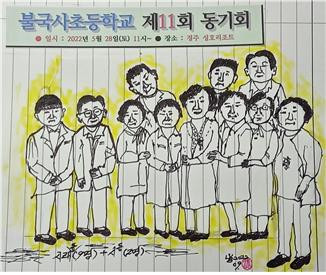 불국사초등학교 제11회 동기회
● 일시 : 2022년 5월 28일(토) 11시~ ● 장소 : 경주 상호리조트